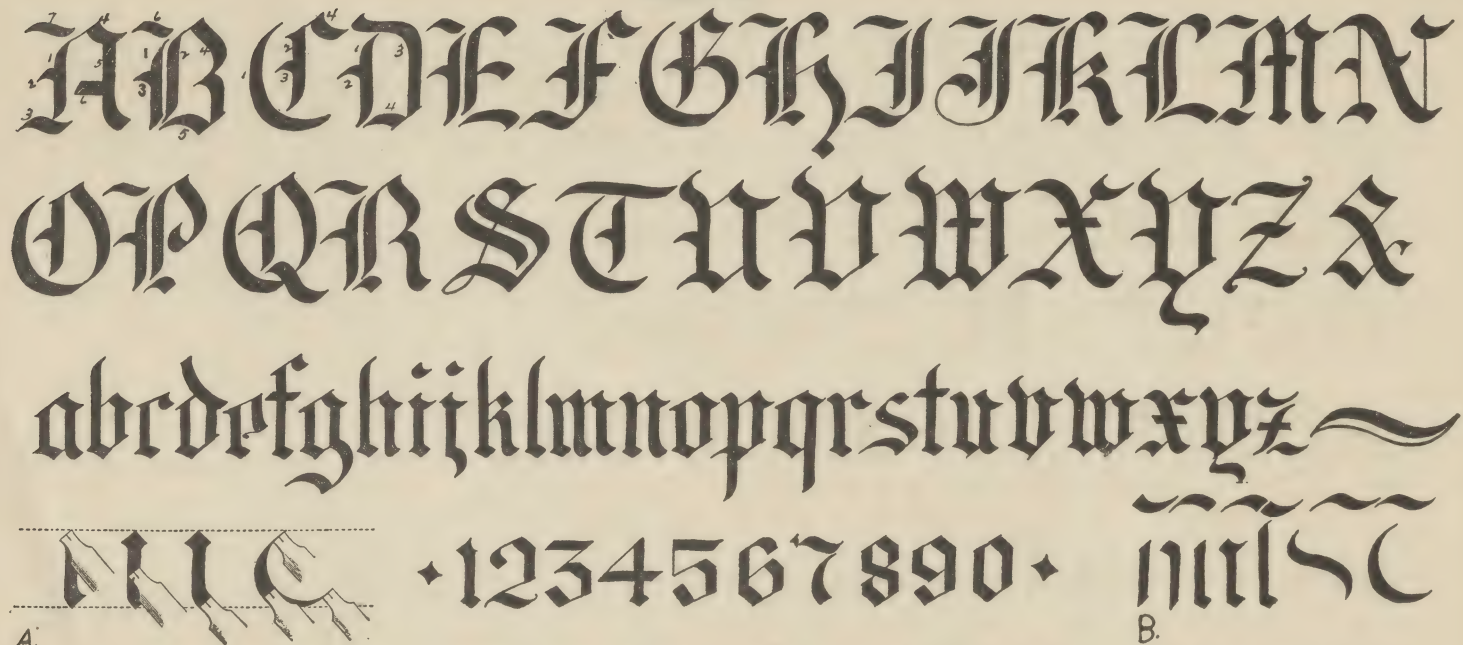 A B C D E F G H I J K L M N
O P Q R S T U V W X Y Z &
a b c d e f g h i j k l m n o p q r s t u v w x y z
1 2 3 4 5 6 7 8 9 0
A.
B.